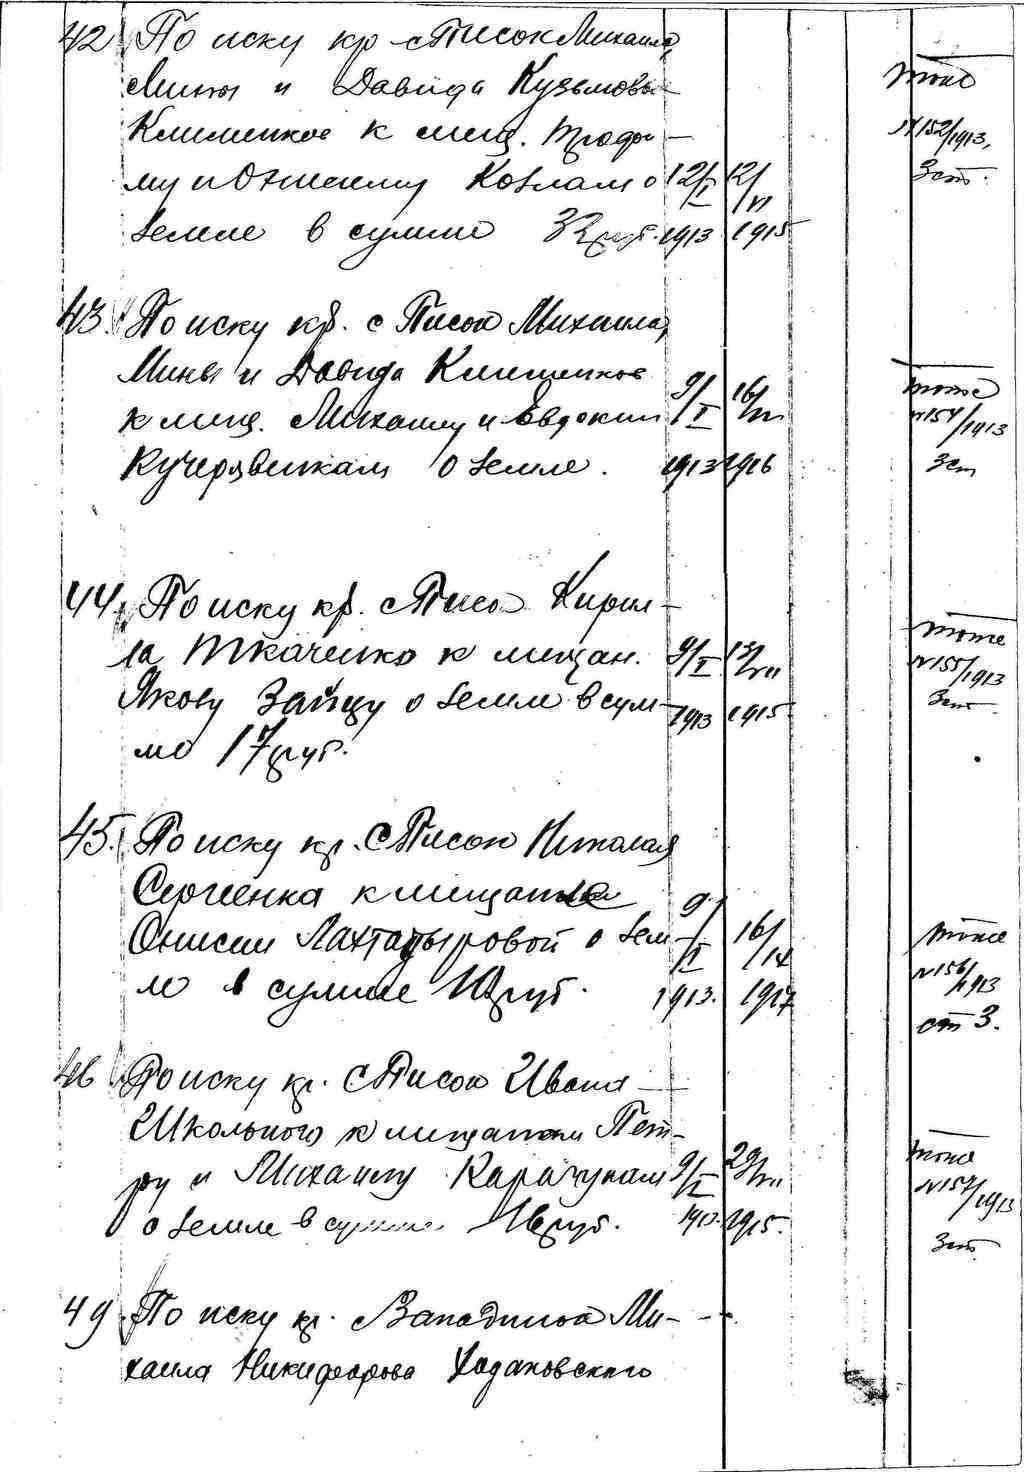 42 По иску кр. с Писок Михаила,
Мины и Давида Кузьмовых
Клименков к мещ. Трофи-
му и Онисему Козлам о 12/I 12/VI
земле в сумме 32 руб. 1913 1915
тоже
№152/1913,
3 ст.
43. По иску кр. с Писок Михаила,
Мины и Давида Клименков
к мещ. Михаилу и Евдокии 9/II 16/III
Кучерявенкам о земле. 1913 1916
тоже
№154/1913
3 ст
44. По иску кр. с Писок Кирил-
ла Ткаченко к мещан. 9/II 13/VII
Якову Зайцу о земле в сум-
ме 17 руб. 1913 1915
тоже
№155/1913
3 ст
45. По иску кр. с Писок Николая
Сергеенка к мещанке
Онисии Лахтадыровой о зем- 9/II 16/IX
ле в сумме руб. 1913. 1917
тоже
№156/1913
ст 3.
46 По иску кр. с Писок Ивана
Школьного к мещанам Пет-
ру и Михаилу Карачунам 9/II 29/VII
о земле в сумме руб. 1913. 1915.
тоже
№157/1913
3 ст.
49 По иску кр. с Западинок Ми-
хаила Никифорова Ходаковского